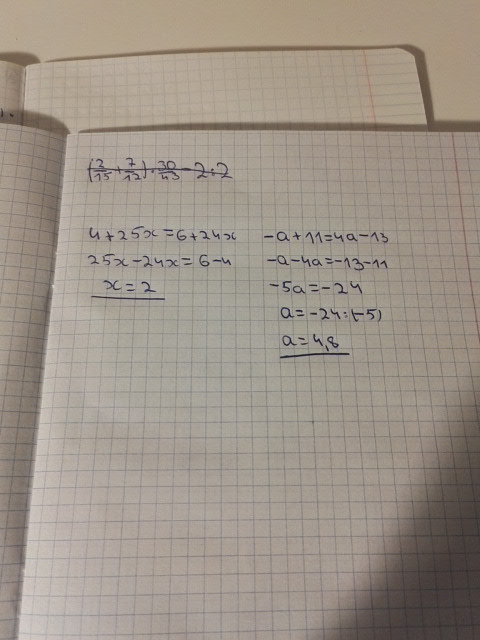 (2/15+7/12)·30/43-2:2
4+25x=6+24x
25x-24x=6-4
x=2
-a+11=4a-13
-a-4a=-13-11
-5a=-24
a=-24:(-5)
a=4,8